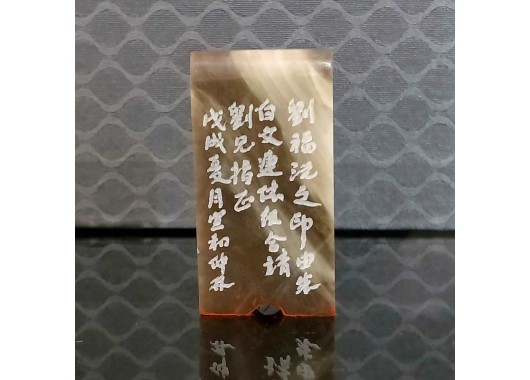 劉福沅之印由朱
白文連珠組合請
劉兄指正
戊戌夏月宣和仲林